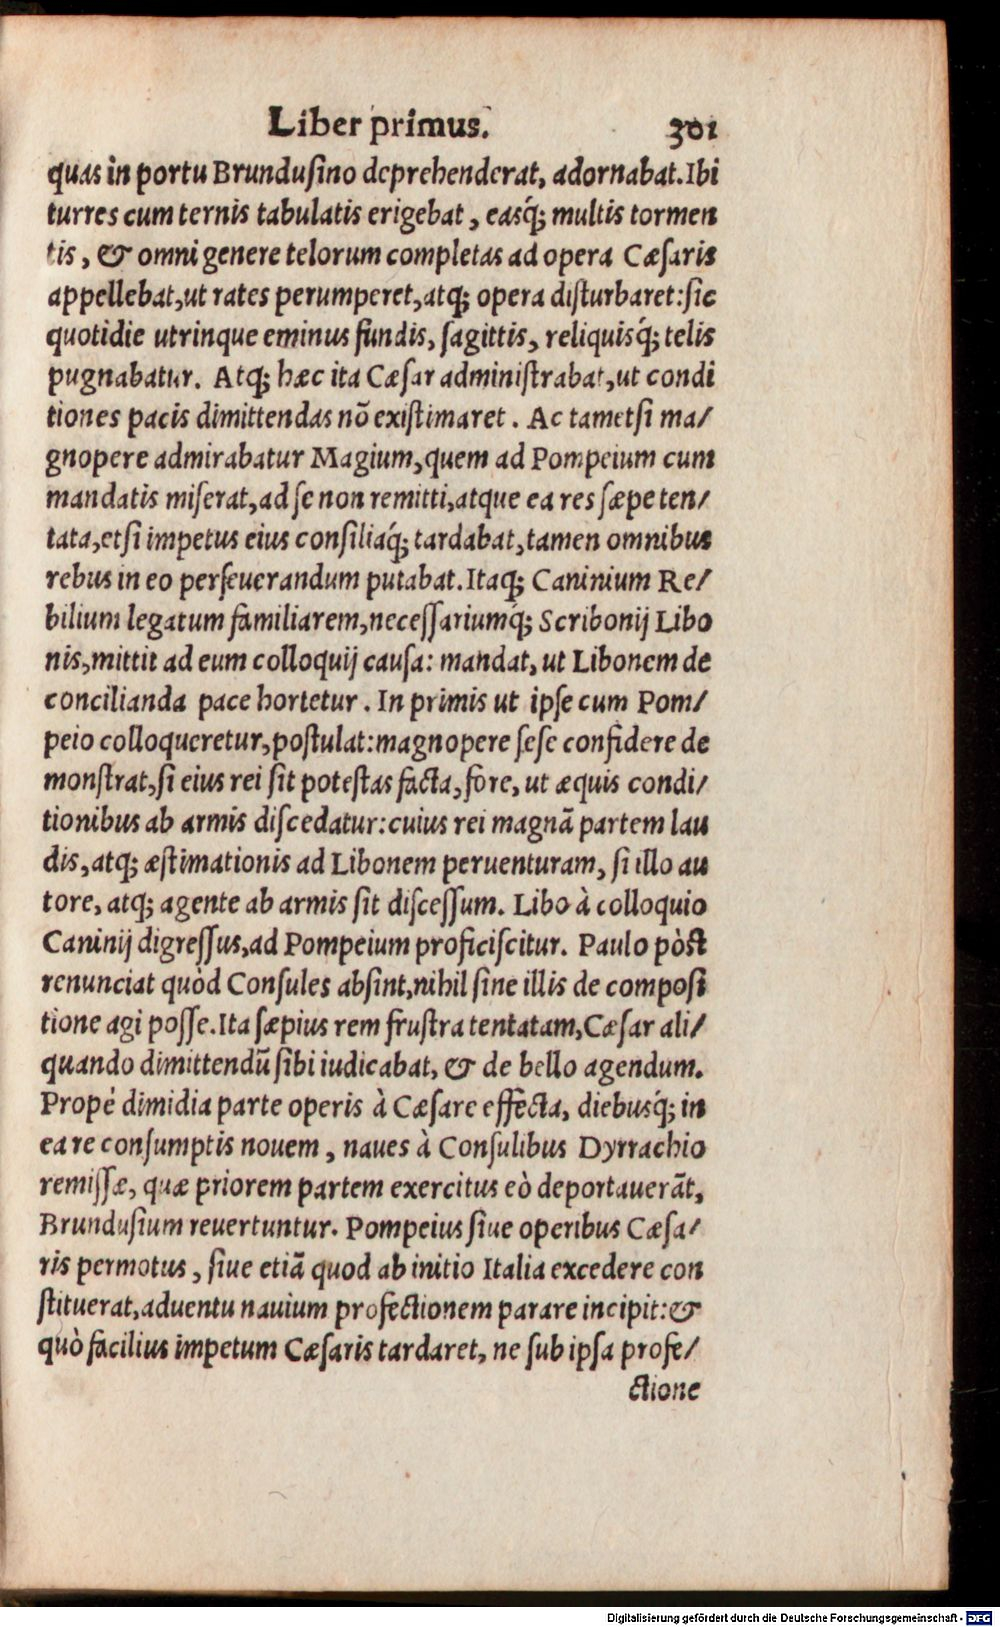 Liber primus. 301
quas in portu Brundusino deprehenderat, adornabat. Ibi
turres cum ternis tabulatis erigebat, easq́; multis tormen
tis, & omni genere telorum completas ad opera Cæsaris
appellebat, ut rates perumperet, atq; opera disturbaret: sic
quotidie utrinque eminus fundis, sagittis, reliquisq́; telis
pugnabatur. Atq; hæc ita Cæsar administrabat, ut condi
tiones pacis dimittendas nõ existimaret. Ac tametsi ma/
gnopere admirabatur Magium, quem ad Pompeium cum
mandatis miserat, ad se non remitti, atque ea res sæpe ten/
tata, etsi impetus eius consiliaq́; tardabat, tamen omnibus
rebus in eo perseuerandum putabat. Itaq; Caninium Re/
bilium legatum familiarem, necessariumq́; Scribonij Libo
nis, mittit ad eum colloquij causa: mandat, ut Libonem de
concilianda pace hortetur. In primis ut ipse cum Pom/
peio colloqueretur, postulat: magnopere sese confidere de
monstrat, si eius rei sit potestas facta, fore, ut æquis condi/
tionibus ab armis discedatur: cuius rei magnã partem lau
dis, atq; æstimationis ad Libonem peruenturam, si illo au
tore, atq; agente ab armis sit discessum. Libo à colloquio
Caninij digressus, ad Pompeium proficiscitur. Paulo pòst
renunciat quòd Consules absint, nihil sine illis de composi
tione agi posse. Ita sæpius rem frustra tentatam, Cæsar ali/
quando dimittendũ sibi iudicabat, & de bello agendum.
Propè dimidia parte operis à Cæsare effecta, diebusq́; in
ea re consumptis nouem, naues à Consulibus Dyrrachio
remissæ, quæ priorem partem exercitus eò deportauerãt,
Brundusium reuertuntur. Pompeius siue operibus Cæsa/
ris permotus, siue etiã quod ab initio Italia excedere con
stituerat, aduentu nauium profectionem parare incipit: &
quò facilius impetum Cæsaris tardaret, ne sub ipsa profe/
ctione
Digitalisierung gefördert durch die Deutsche Forschungsgemeinschaft - DFG